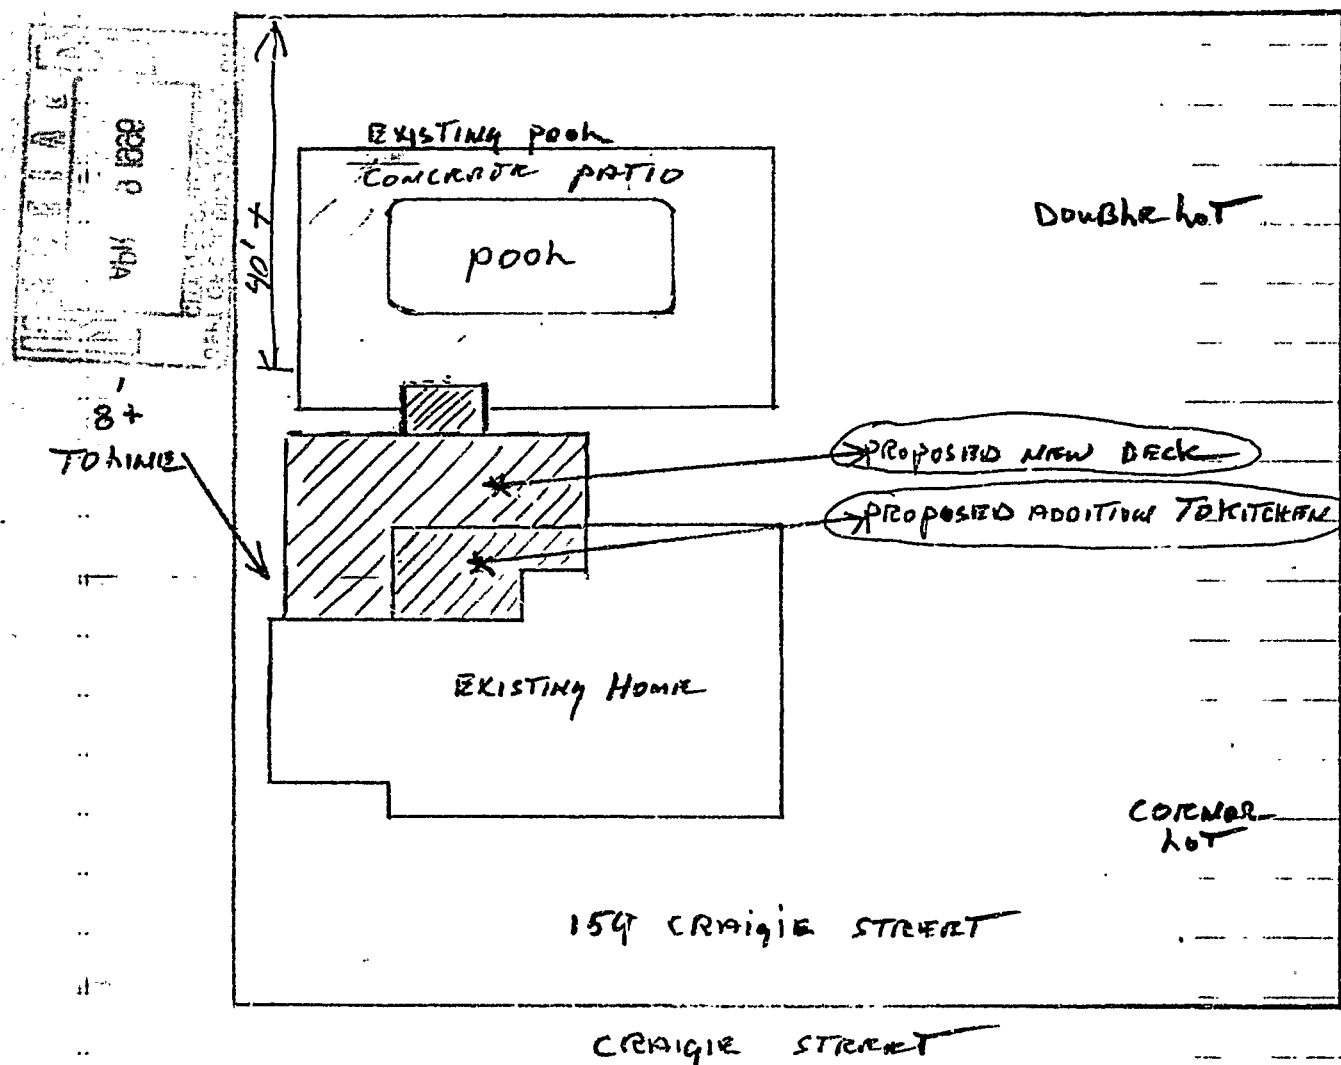 EXISTING POOL
CONCRETE PATIO
POOL
40' +
DOUBLE LOT
8'+
TO LINE
PROPOSED NEW DECK
PROPOSED ADDITION TO KITCHEN
EXISTING HOME
CORNER
LOT
159 CRAIGIE STREET
CRAIGIE STREET